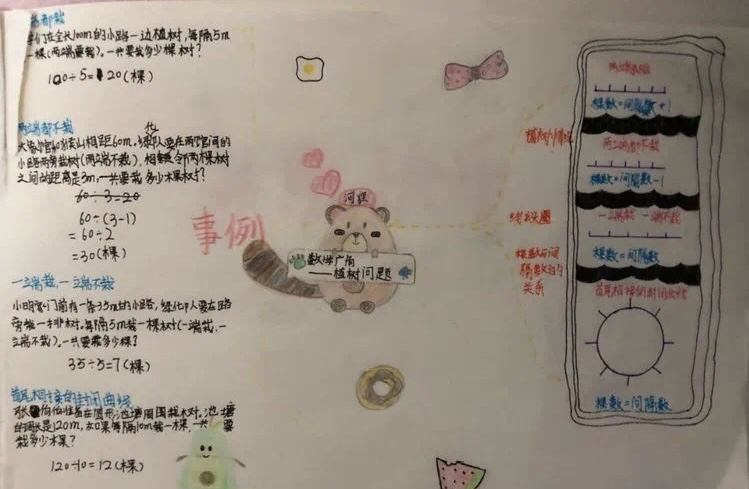 同学们在全长100m的小路一边植树,每隔5m
一棵(两端要栽)。一共要栽多少棵树?
100÷5=20(棵)
两端都不栽
大象馆和猴山相距60m。绿化人要在两馆间的
小路两旁栽树(两端不栽),相邻两棵树
之间的距离是3m,一共要栽多少棵树?
60÷3=20
60÷(3-1)
=60÷2
=30(棵)
一端栽,一端不栽
小明家门前有一条35m的小路,绿化人要在路
旁栽一排树。每隔5m栽一棵树(一端栽,一
端不栽)。一共要栽多少棵?
35÷5=7(棵)
首尾相接的封闭曲线
张伯伯准备在圆形池塘周围栽树。池塘
的周长是120m,如果每隔10m栽一棵,一共要
栽多少棵?
120÷10=12(棵)
事例
河狸
数学广角
——植树问题
植树情况
线段图
棵数与间
隔数的
关系
两端都栽
棵数=间隔数+1
两端都不栽
棵数=间隔数-1
一端栽 一端不栽
棵数=间隔数
首尾相接的封闭曲线
棵数=间隔数